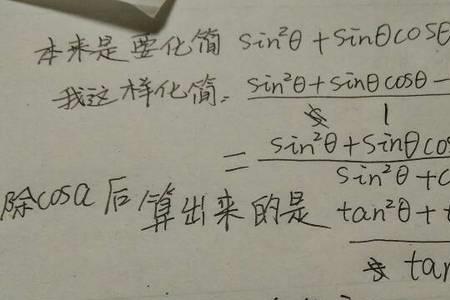 本来是要化简 sin²θ + sinθcosθ
我这样化简: sin²θ + sinθcosθ -
1
= sin²θ + sinθco
sin²θ + c
除cosα后算出来的是 tan²θ + t
tan